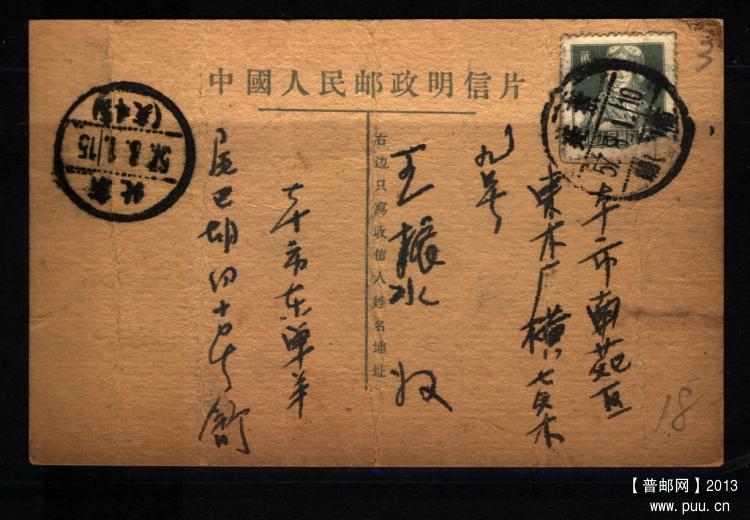 中國人民邮政明信片
右边只寫收信人姓名地址
本市南苑区
東木厂橫七条
九号
王振水 收
本市东單羊
尾巴胡同十号 舒
北京
57.8.1.15
3
18
【普邮网】2013
www.puu.cn